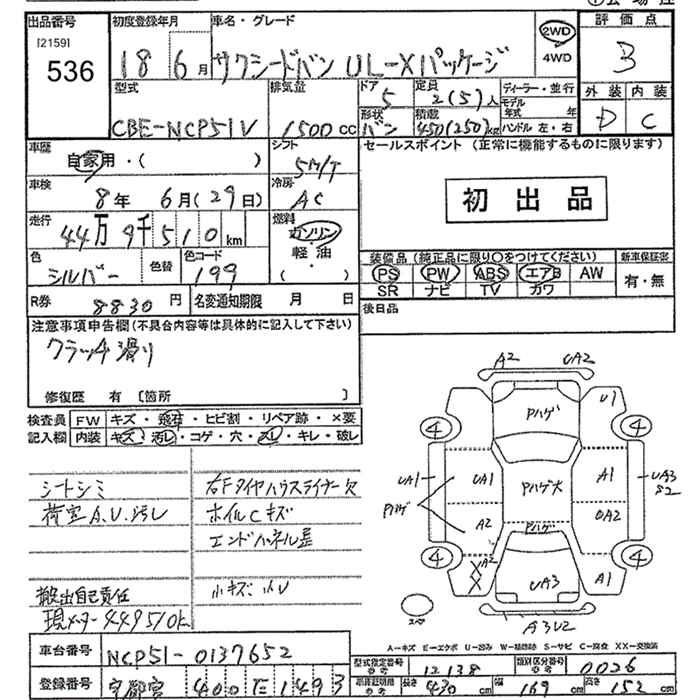 出品番号 初度登録年月 車名・グレード 評価点
[2159]
536 18年 6月 サクシードバン UL-Xパッケージ 2WD 4WD 3
型式 排気量 ドア 定員 ディーラー・並行 外装 内装
CBE-NCP51V 1500cc 5 2(5)人 モデル年式 年 D C
形状 バン 積載 450(250)kg ハンドル 左・右
車歴 自家用・( ) シフト 5M/T セールスポイント (正常に機能するものに限ります)
車検 8年 6月(29日) 冷房 AC 初出品
走行 44万9千510km 燃料 ガソリン・軽油・( )
色 シルバー 色替 色コード 199 装備品 (純正品に限り○をつけてください) 新車保証書
PS PW ABS エアB AW 有・無
SR ナビ TV カワ
R券 8830円 名変通知期限 月 日 後日品
注意事項申告欄(不具合内容等は具体的に記入して下さい)
クラッチ滑り
修復歴 有 [箇所 ]
検査員 FW キズ・飛石・ヒビ割・リペア跡・×要
記入欄 内装 キズ・汚レ・コゲ・穴・スレ・キレ・破レ
シートシミ 右Fタイヤハウスライナー欠
荷室A.U.汚レ ホイルCキズ
エンドパネル歪
搬出自己責任 小キズ小U
現メーター449510k
A2 UA2
Pハゲ U1
4 4
UA1 Pハゲ UA1 Pハゲ大 A1 UA3 S2
A2 Pハゲ UA2
4 4
A2 XX UA3 A1
スペア A3U2
A-キズ E-エクボ U-凹み W-補修跡 S-サビ C-腐食 XX-交換済
車台番号 NCP51-0137652 型式指定番号 12138 類別区分番号 0026
登録番号 宇都宮 400 E 1493 長さ 430cm 幅 169cm 高さ 152cm